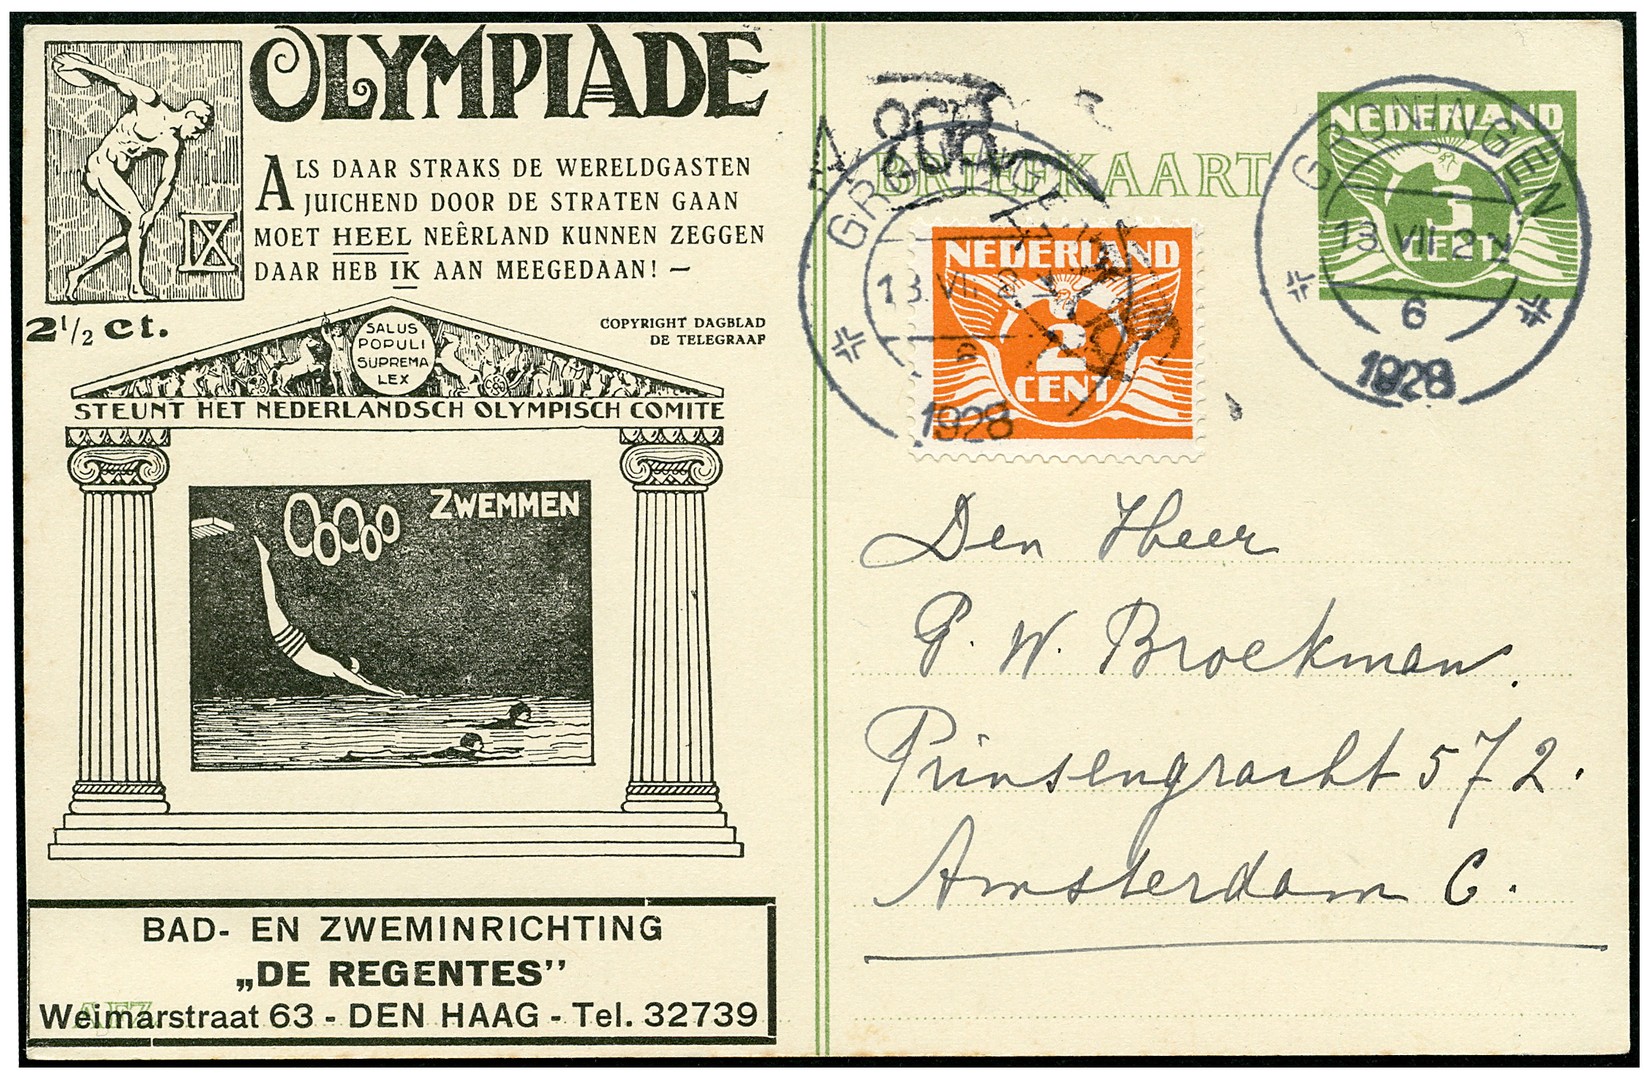 OLYMPIADE
IX
ALS DAAR STRAKS DE WERELDGASTEN
JUICHEND DOOR DE STRATEN GAAN
MOET HEEL NEÊRLAND KUNNEN ZEGGEN
DAAR HEB IK AAN MEEGEDAAN! —
2 1/2 ct.
COPYRIGHT DAGBLAD
DE TELEGRAAF
SALUS
POPULI
SUPREMA
LEX
STEUNT HET NEDERLANDSCH OLYMPISCH COMITE
ZWEMMEN
BAD- EN ZWEMINRICHTING
„DE REGENTES”
Weimarstraat 63 - DEN HAAG - Tel. 32739
BRIEFKAART
NEDERLAND
3
CENT
GRONINGEN
13 VII
6
1928
NEDERLAND
2
CENT
GRONINGEN
13 VII
6
1928
Den Heer
G. W. Broekman.
Prinsengracht 572.
Amsterdam C.